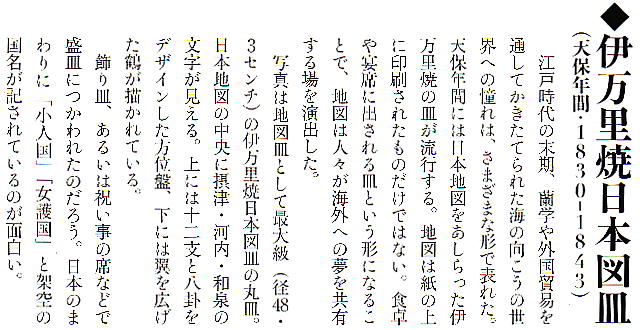 ◆伊万里焼日本図皿
(天保年間・1830-1843)
江戸時代の末期、蘭学や外国貿易を
通してかきたてられた海の向こうの世
界への憧れは、さまざまな形で表れた。
天保年間には日本地図をあしらった伊
万里焼の皿が流行する。地図は紙の上
に印刷されたものだけではない。食卓
や宴席に出される皿という形になるこ
とで、地図は人々が海外への夢を共有
する場を演出した。
写真は地図皿として最大級（径48・
3センチ）の伊万里焼日本図皿の丸皿。
日本地図の中央に摂津・河内・和泉の
文字が見える。上には十二支と八卦を
デザインした方位盤、下には翼を広げ
た鶴が描かれている。
飾り皿、あるいは祝い事の席などで
盛皿につかわれたのだろう。日本のま
わりに「小人国」「女護国」と架空の
国名が記されているのが面白い。